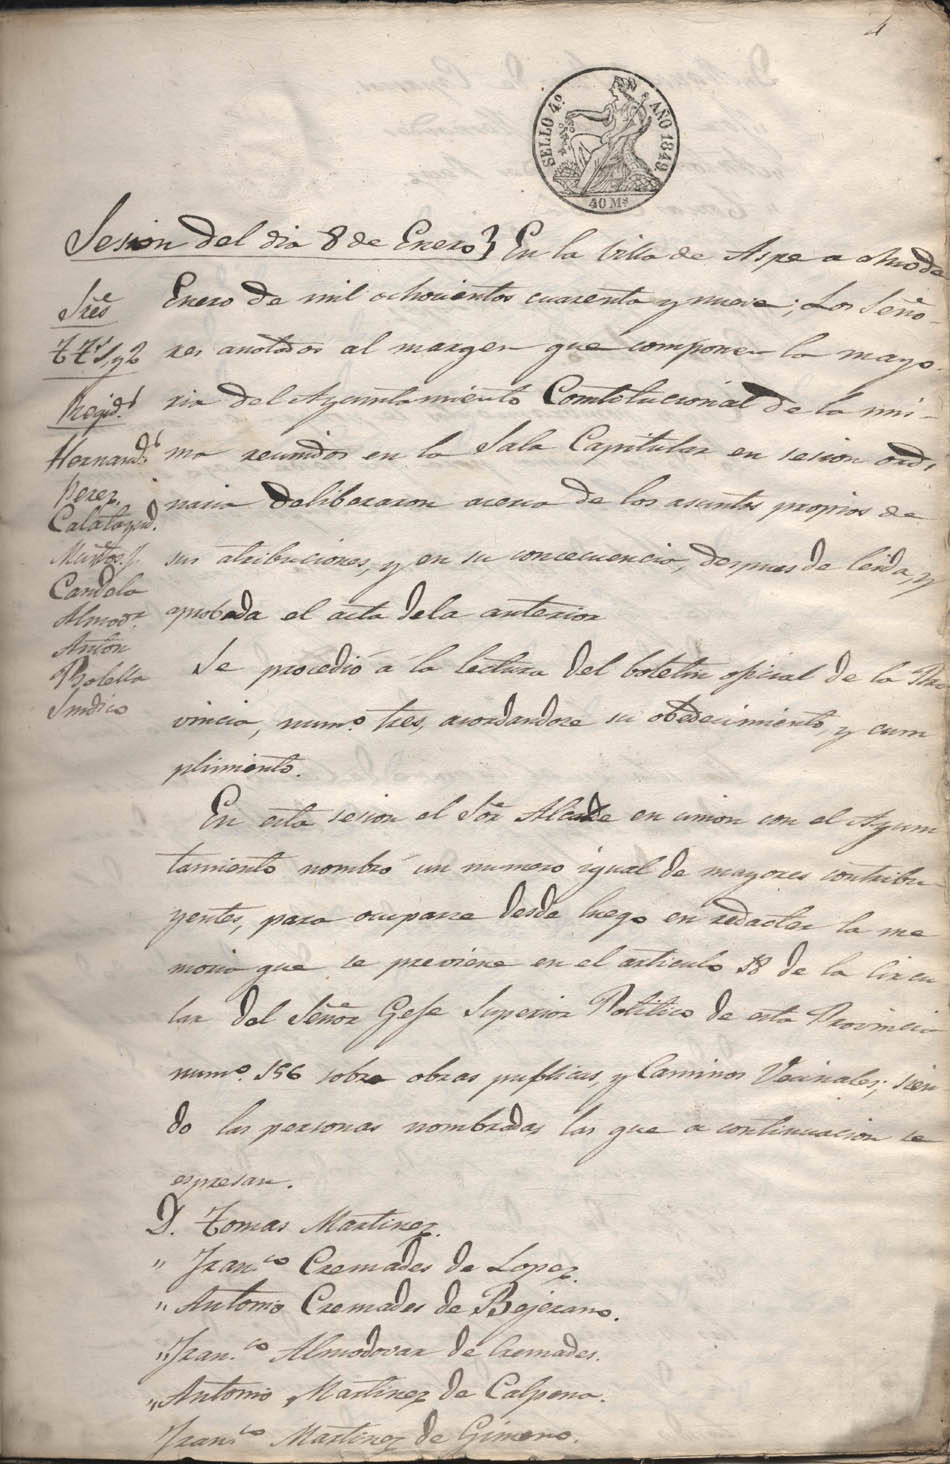 4
SELLO 4º AÑO 1849.
40 Ms
Sesion del dia 8 de Enero} En la Villa de Aspe a ocho de
Enero de mil ochocientos cuarenta y nueve; Los Seño-
res anotados al margen que componen la mayo-
ria del Ayuntamiento Constitucional de la mis-
ma reunidos en la Sala Capitular en sesion ordi
naria deliberaron acerca de los asuntos propios de
sus atribuciones, y en su concecuencia, despues de leida, y
aprobada el acta dela anterior
Sres
TTs 1 y 2
Regid.s
Hernand.s
Perez
Calatayud.
Candela
Almodr.
Anton
Botella
Sindico
Se procedió a la lectura del boletin oficial de la Pro
vincia, numº. tres, acordandose su obedecimiento, y cum
plimiento.
En esta sesion el Sor Alcalde en union con el Ayun
tamiento nombró un numero igual de mayores contribu-
yentes, para ocuparse desde luego en redactar la me
moria que se previene en el articulo 18 de la Circu
lar del Señor Gefe Superior Politico de esta Provincia
numº. 156 sobre obras publicas, y Caminos Vecinales; sien
do las personas nombradas las que a continuacion se
espresan.
D. Tomas Martinez.
" Fran.co Cremades de Lopez.
" Antonio Cremades de Bejerano.
" Fran.co Almodovar de Cremades.
" Antonio Martinez de Calpena.
Fran.co Martinez de Gimeno.